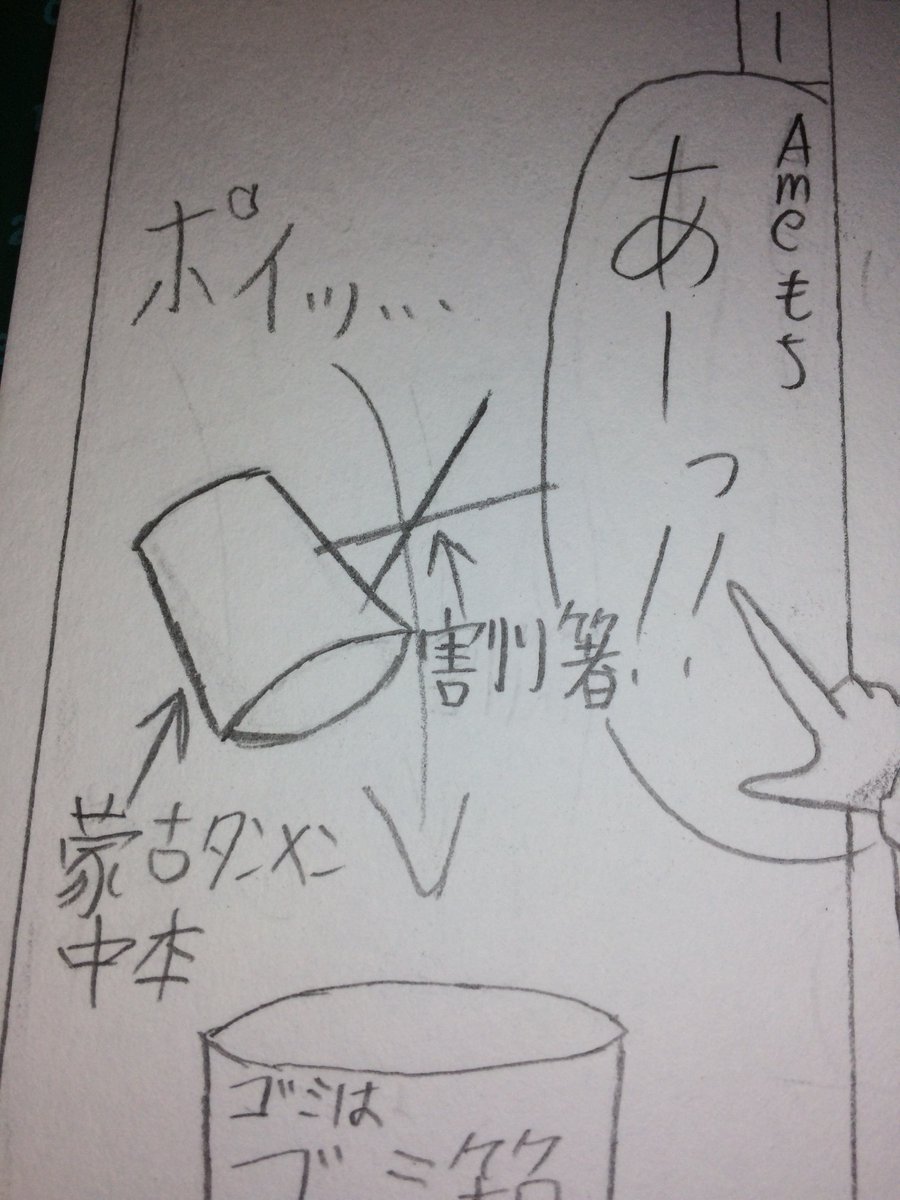 Ameもち
あーっ!!
ポイッ…
割り箸…
蒙古タンメン
中本
ゴミは
ゴミ箱